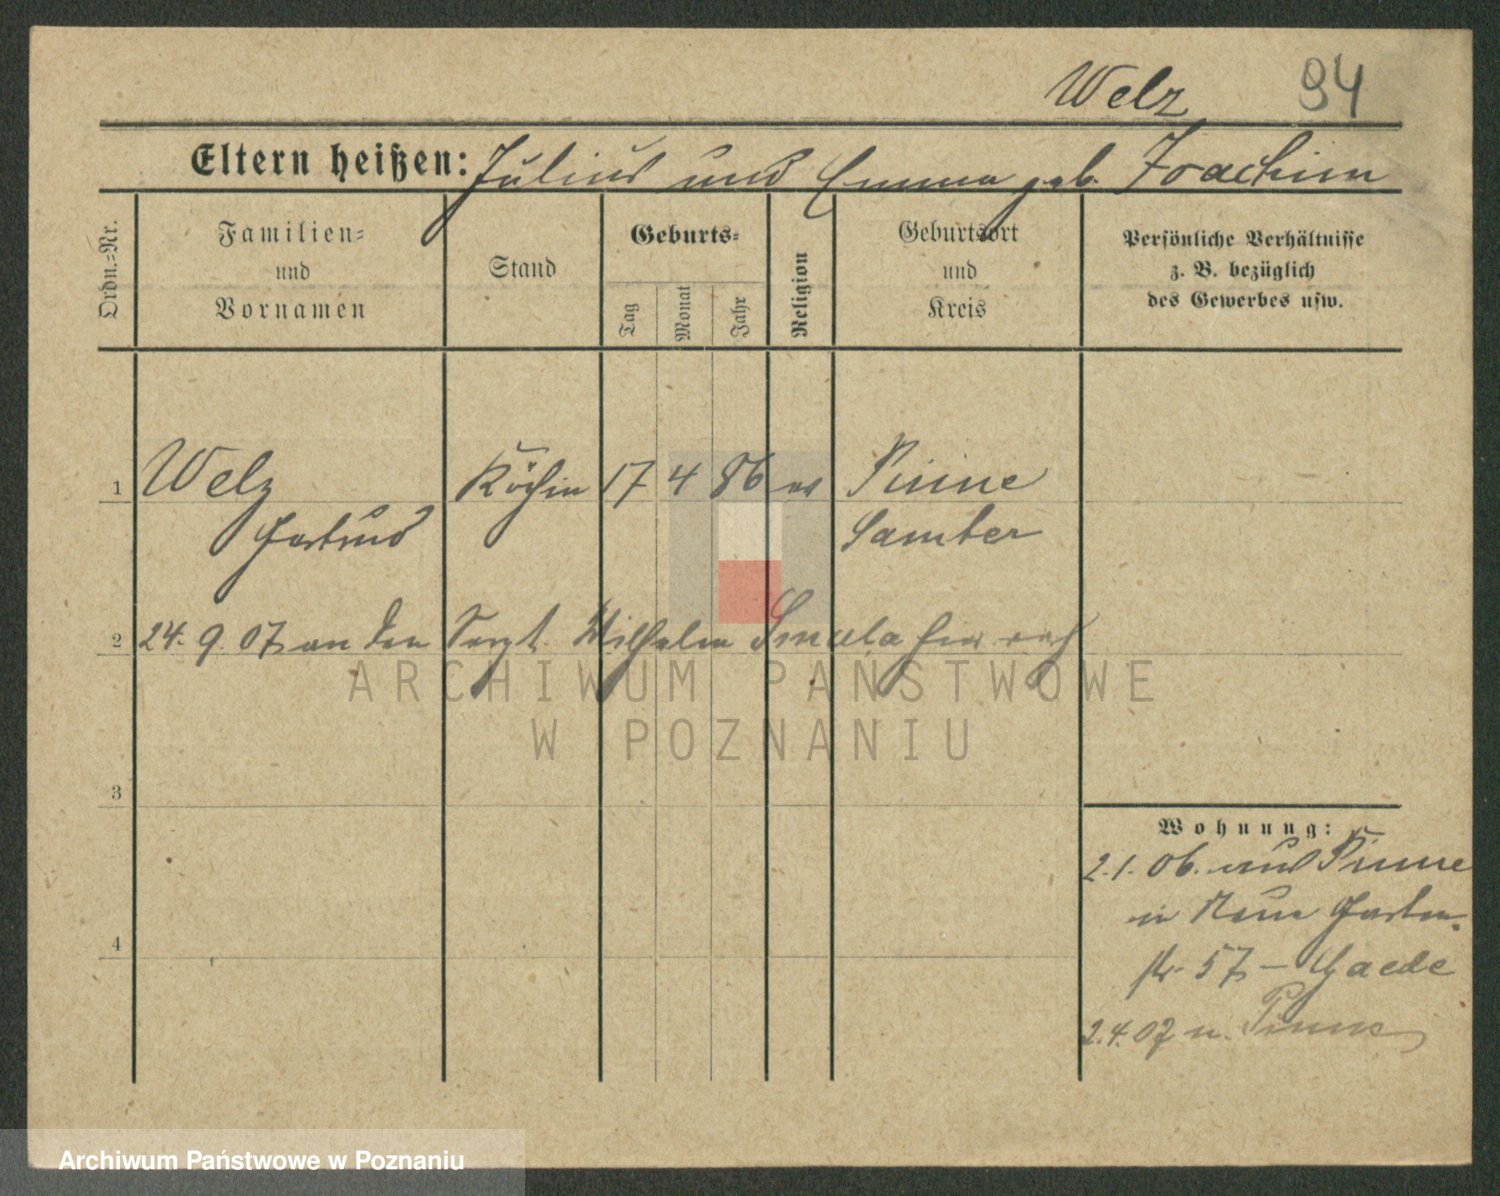 Welz 94
Eltern heißen: Julius und Emma geb. Joachim
Ordn.-Nr.
Familien-
und
Vornamen
Stand
Geburts-
Tag
Monat
Jahr
Religion
Geburtsort
und
Kreis
Persönliche Verhältnisse
z. B. bezüglich
des Gewerbes usw.
1 Welz Köchin 17 4 86 ev Pinne
Gertrud Samter
2 24. 9. 07 an den Sergt. Wilhelm Smala hier verh
ARCHIWUM PAŃSTWOWE
W POZNANIU
3
Wohnung:
2.1.06. aus Pinne
in Neue Garten-
4
str. 57 – Gaede
2.4.07 n. Pinne
Archiwum Państwowe w Poznaniu